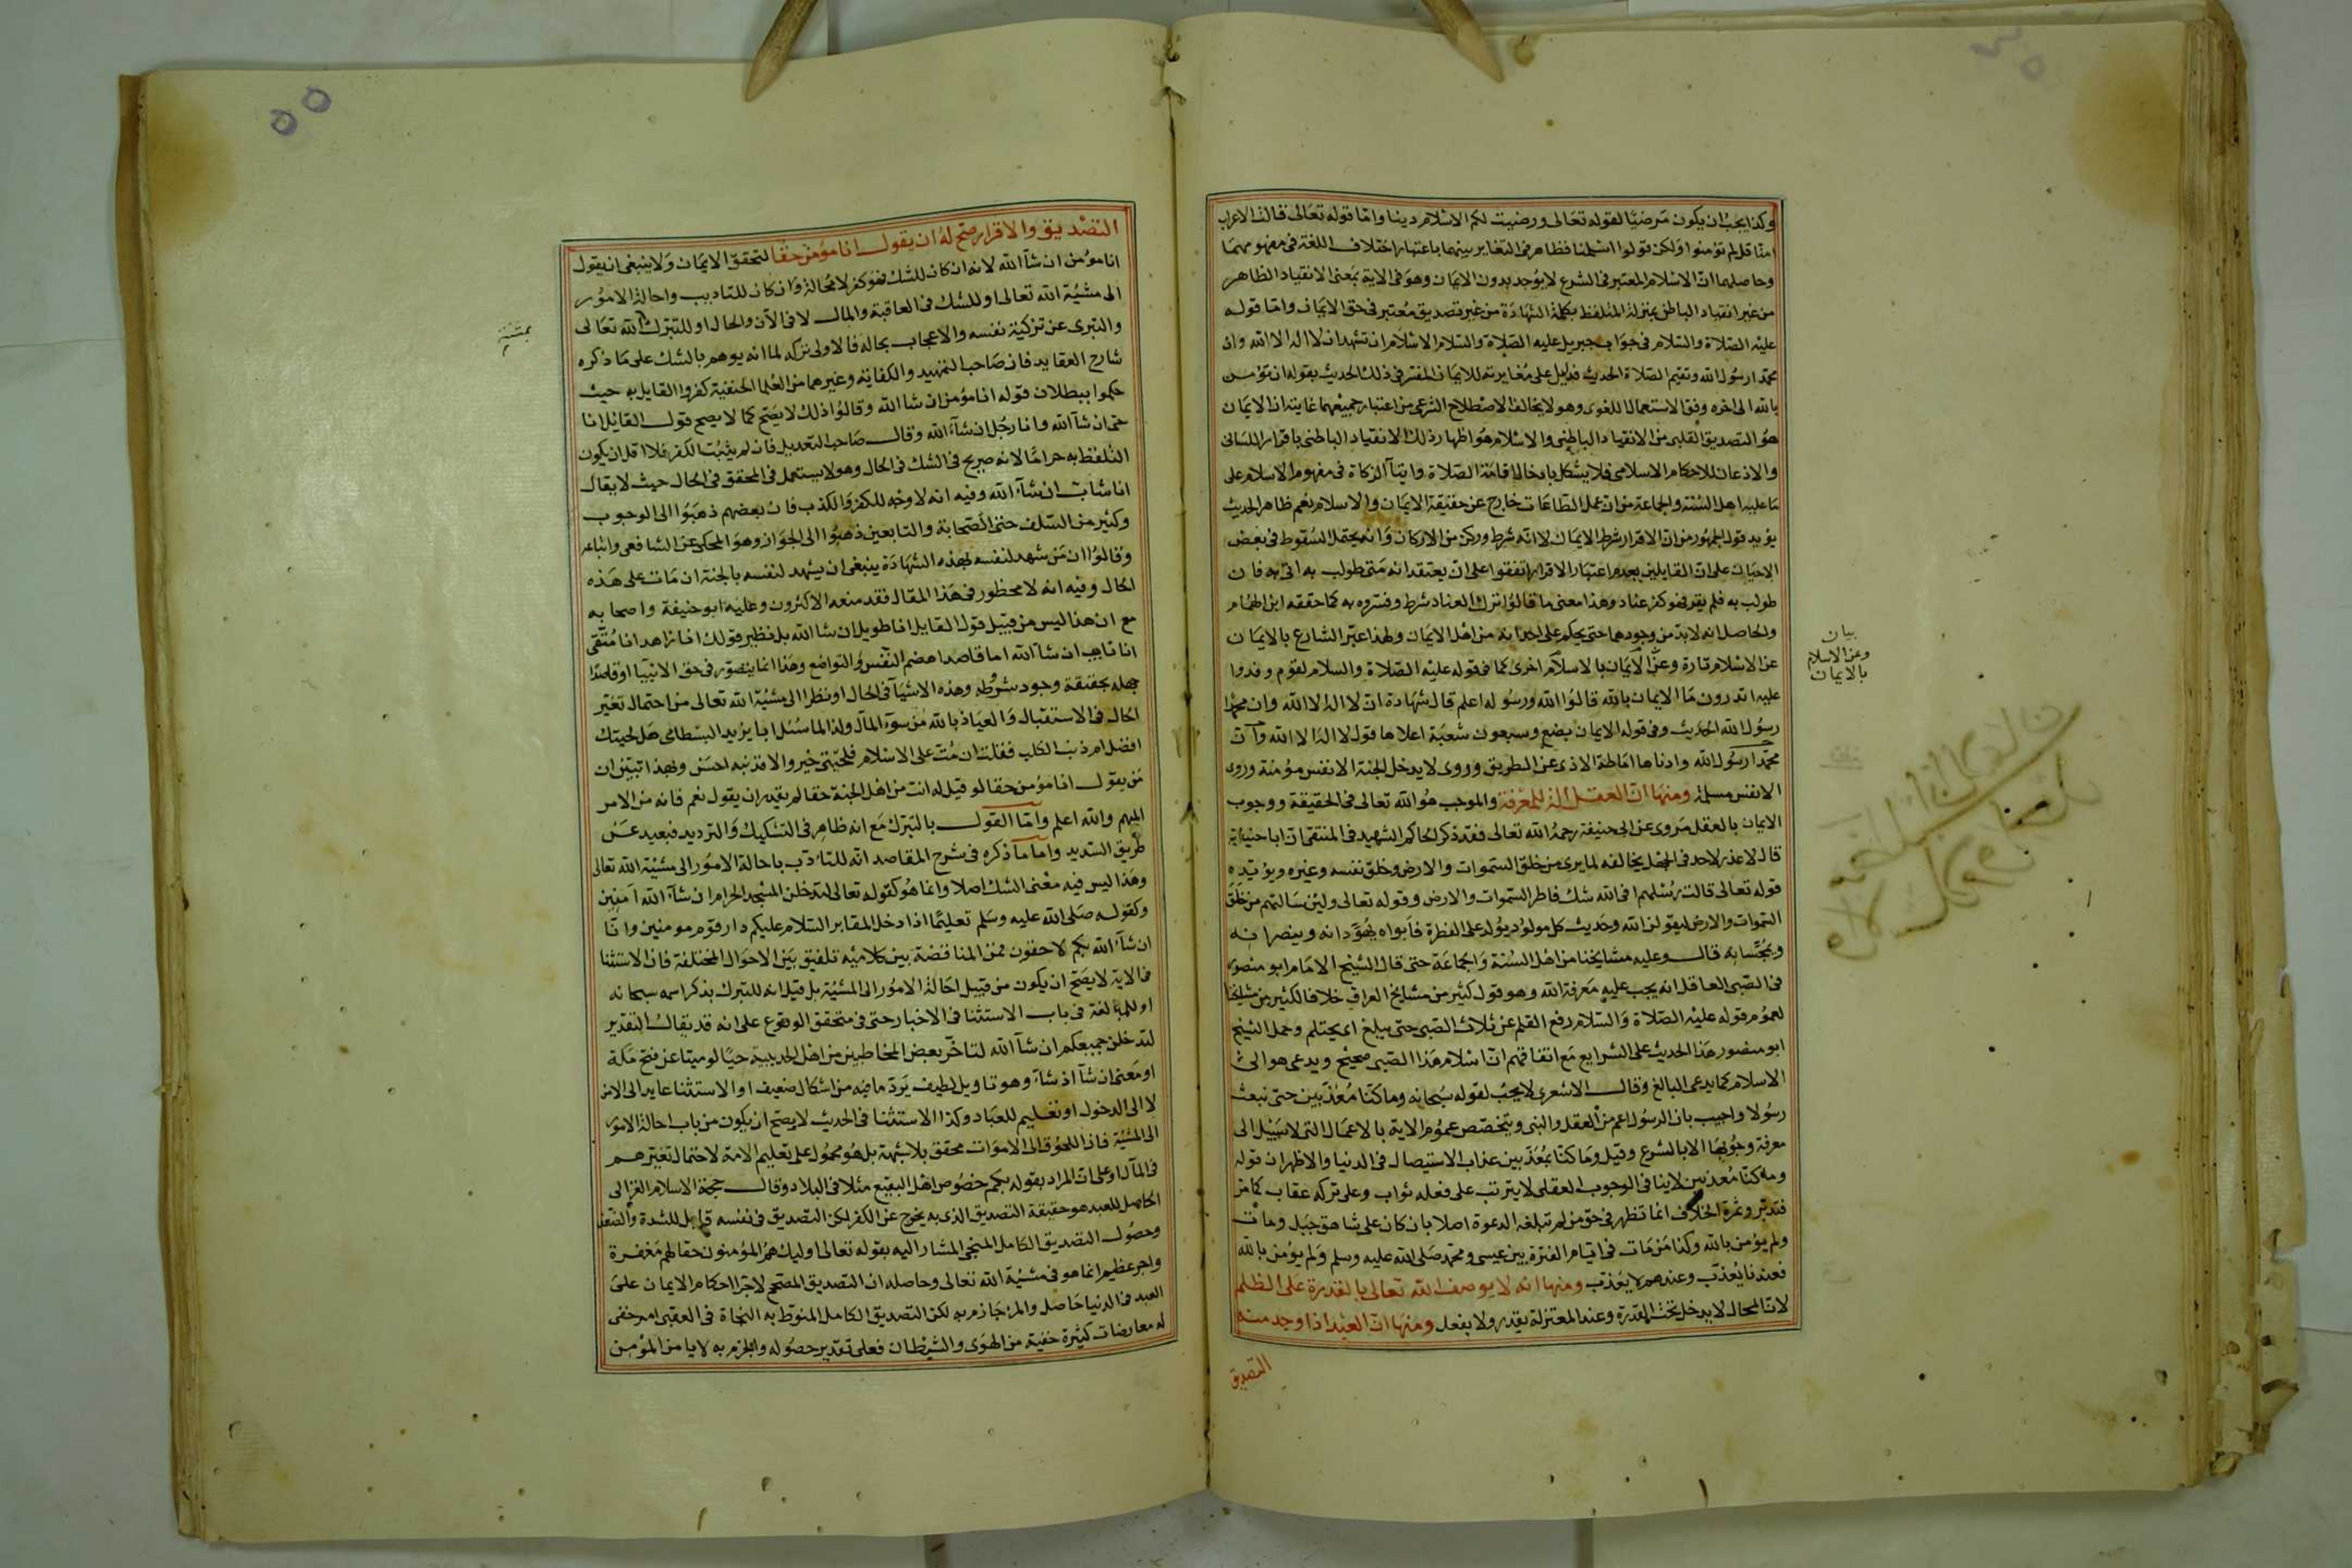 وكذا يجب ان يكون مرضيا لقوله تعالى ورضيت لكم الاسلام دينا واما قوله تعالى قالت الاعراب
امنا قل لم تؤمنوا ولكن قولوا اسلمنا فظاهر في التغاير بينهما باعتبار اختلاف اللغة في مفهومهما
وحاصلهما ان الاسلام المعتبر في الشرع لا يوجد بدون الايمان وهو في الاية بمعنى الانقياد الظاهر
من غير انقياد الباطن بمنزلة المتلفظ بكلمة الشهادة من غير تصديق معتبر في حق الايمان واما قوله
عليه الصلاة والسلام في جواب جبريل عليه الصلاة والسلام الاسلام ان تشهد ان لا اله الا الله وان
محمدا رسول الله وتقيم الصلاة الحديث فدليل على مغايرته للايمان المفسر في ذلك الحديث بقوله ان تؤمن
بالله الى اخره وفق الاستعمال اللغوي وهو لا يخالف الاصطلاح الشرعي من اعتبار جميعهما غايته ان الايمان
هو التصديق القلبي من الانقياد الباطني والاسلام هو اظهار ذلك الانقياد الباطني باقرار اللساني
والاذعان للاحكام الاسلامي فلا يشكل بادخال اقامة الصلاة وايتآ الزكاة في مفهوم الاسلام على
ما عليه اهل السنة والجماعة من ان عمل الطاعات خارج عن حقيقة الايمان والاسلام نعم ظاهر الحديث
يؤيد قول الجمهور من ان الاقرار شرط الايمان لا انه شرط وركن من الاركان وانه يحتمل السقوط في بعض
الاحيان على ان القايلين بعدم اعتبار الاقرار اتفقوا على ان يعتقد انه متى طولب به اتى به فان
طولب به فلم يقر فهو كفر عناد وهذا معنى ما قالوا ترك العناد شرط وفسروه به كما حققه ابن الهمام
والحاصل انه لا بد من وجودهما حتى يحكم على احد انه من اهل الايمان ولهذا عبر الشارع بالايمان
عن الاسلام تارة وعن الايمان بالاسلام اخرى كما في قوله عليه الصلاة والسلام لقوم وفدوا
عليه اتدرون ما الايمان بالله قالوا الله ورسوله اعلم قال شهادة ان لا اله الا الله وان محمدا
رسول الله الحديث وفي قوله الايمان بضع وسبعون شعبة اعلاها قول لا اله الا الله وان
محمدا رسول الله وادناها اماطة الاذى عن الطريق وروى لا يدخل الجنة الا نفس مؤمنة وروى
الا نفس مسلمة ومنها ان العقل الة للمعرفة والموجب هو الله تعالى في الحقيقة ووجوب
الايمان بالعقل مروى عن ابي حنيفة رحمه الله تعالى فقد ذكر الحاكم الشهيد في المنتقى ان ابا حنيفة
قال لا عذر لاحد في الجهل بخالقه لما يرى من خلق السموات والارض وخلق نفسه وغيره ويؤيده
قوله تعالى قالت رسلهم افي الله شك فاطر السموات والارض وقوله تعالى ولئن سالتهم من خلق
السموات والارض ليقولن الله وحديث كل مولود يولد على الفطرة فابواه يهودانه وينصرانه
ويمجسانه قال وعليه مشايخنا من اهل السنة والجماعة حتى قال الشيخ الامام ابو منصور
في الصبي العاقل انه يجب عليه معرفة الله وهو قول كثير من مشايخ العراق خلافا لكثير من مشايخنا
لعموم قوله عليه الصلاة والسلام رفع القلم عن ثلاث الصبي حتى يبلغ اى يحتلم وحمل الشيخ
ابو منصور هذا الحديث على الشرايع مع اتفاقهم ان اسلام هذا الصبي صحيح ويدعى هو الى
الاسلام كما يدعى البالغ وقال الاشعري لا يجب لقوله سبحانه وما كنا معذبين حتى نبعث
رسولا واجيب بان الرسول اعم من العقل والنبي ويتخصص عموم الاية بالاعمال التي لا سبيل الى
معرفة وجوبها الا بالشرع وقيل وما كنا معذبين عذاب الاستيصال في الدنيا والاظهر ان قوله
وما كنا معذبين لا ينافي الوجوب العقلي لا يترتب على فعله ثواب وعلى تركه عقاب كما مر
فتدبر وثمرة الخلاف انما تظهر في حق من لم تبلغه الدعوة اصلا بان كان على شاهق جبل ومات
ولم يؤمن بالله وكذا من مات في ايام الفترة بين عيسى ومحمد صلى الله عليه وسلم ولم يؤمن بالله
فعندنا يعذب وعندهم لا يعذب ومنها انه لا يوصف الله تعالى بالقدرة على الظلم
لان المحال لا يدخل تحت القدرة وعند المعتزلة يقدر ولا يفعل ومنها ان العبد اذا وجد منه
التصديق
بيان
وعن الاسلام
بالايمان
التصديق والاقرار صح له ان يقول انا مؤمن حقا لتحقق الايمان ولا ينبغي ان يقول
انا مؤمن ان شآ الله لانه ان كان للشك فهو كفر لا محالة وان كان للتاديب واحالة الامور
الى مشية الله تعالى او للشك في العاقبة والمال لا في الآن والحال او للتبرك الله تعالى
والتبرى عن تزكية نفسه والاعجاب بحاله فالاولى تركه لما انه يوهم بالشك على ما ذكره
شارح العقايد فان صاحب التمهيد والكفاية وغيرهما من العلما الحنفية كفروا القايل به حيث
حكموا ببطلان قوله انا مؤمن ان شا الله وقالوا ذلك لا يصح كما لا يصح قول القائل انا
حى ان شآ الله وانا رجل ان شآء الله وقال صاحب التعديل فان لم يثبت الكفر فلا اقل ان يكون
التلفظ به حراما لانه صريح في الشك في الحال وهو لا يستعمل في المحقق في الحال حيث لا يقال
انا شاب ان شآء الله وفيه انه لا وجه للكفر والكذب فان بعضهم ذهبوا الى الوجوب
وكثير من السلف حتى الصحابة والتابعين ذهبوا الى الجواز وهو المحكى عن الشافعي واتباعه
وقالوا ان من شهد لنفسه بهذه الشهادة ينبغي ان يشهد لنفسه بالجنة ان مات على هذه
الحال وفيه انه لا محظور في هذا المقال فقد منعه الاكثرون وعليه ابو حنيفة واصحابه
مع ان هذا ليس من قبيل قول القايل انا طويل ان شا الله بل نظير قولك انا زاهد انا متقي
انا تايب ان شآ الله اما قاصدا هضم النفس والتواضع وهذا انما يتصور في حق الانبيا او قاصدا
جهله بحقيقة وجود شروطه وهذه الاشيآ في الحال او نظرا الى مشية الله تعالى من احتمال تغير
الحال في الاستقبال والعياذ بالله من سوء المآل ولذا لما سئل ابا يزيد البسطامي هل لحيتك
افضل ام ذنب الكلب فقلت ان مت على الاسلام فلحيتي خير والا فذنبه احسن وبهذا تبين ان
من يقول انا مؤمن حقا لو قيل له انت من اهل الجنة حقا لم يقدر ان يقول نعم فانه من الامر
المبهم والله اعلم واما القول بالتبرك مع انه ظاهر في التشكيك والترديد فبعيد عن
طريق السديد واما ما ذكره في شرح المقاصد انه للتادب باحالة الامور الى مشية الله تعالى
وهذا ليس فيه معنى الشك اصلا وانما هو كقوله تعالى لتدخلن المسجد الحرام ان شآء الله امنين
وكقوله صلى الله عليه وسلم تعليما اذا دخل المقابر السلام عليكم دار قوم مومنين وانا
ان شآء الله بكم لاحقون فمن المناقضة بين كلاميه تلفيق بين الاحوال المختلفة فان الاستثنا
في الاية لا يصح ان يكون من قبيل احالة الامور الى المشية بل قيل انه للتبرك بذكر اسمه سبحانه
او للمبالغة في باب الاستثنا في الاخبار حتى في متحقق الوقوع على انه قد يقال التقدير
لتدخلن جميعكم ان شآ الله لتاخر بعض المخاطبين من اهل الحديبية حيا او ميتا عن فتح مكة
او معنى ان شآ اذ شآء وهو تاويل لطيف يرد ما فيه من اشكال ضعيف او الاستثنا عايد الى الامن
لا الى الدخول او تعليم للعباد وكذا الاستثنا في الحديث لا يصح ان يكون من باب احالة الامور
الى المشية فان اللحوق الى الاموات محقق بلا شبهة بل هو محمول على تعليم الامة لاحتمال تغيرهم
في المآل او على ان المراد بقوله بكم خصوص اهل البقيع مثلا في البلاد وقال حجة الاسلام الغزالي
الحاصل للعبد هو حقيقة التصديق الذي به يخرج عن الكفر لكن التصديق في نفسه قابل للشدة والضعف
وحصول التصديق الكامل المنجي المشار اليه بقوله تعالى اوليك هم المؤمنون حقا لهم مغفرة
واجر عظيم انما هو في مشية الله تعالى وحاصله ان التصديق المصحح لاجرا احكام الايمان على
العبد في الدنيا حاصل والمرء جازم به لكن التصديق الكامل المنوط به النجاة في العقبى امر خفى
له معارضات كثيرة خفية من الهوى والشيطان فعلى تقدير حصوله والجزم به لا يامن المؤمن